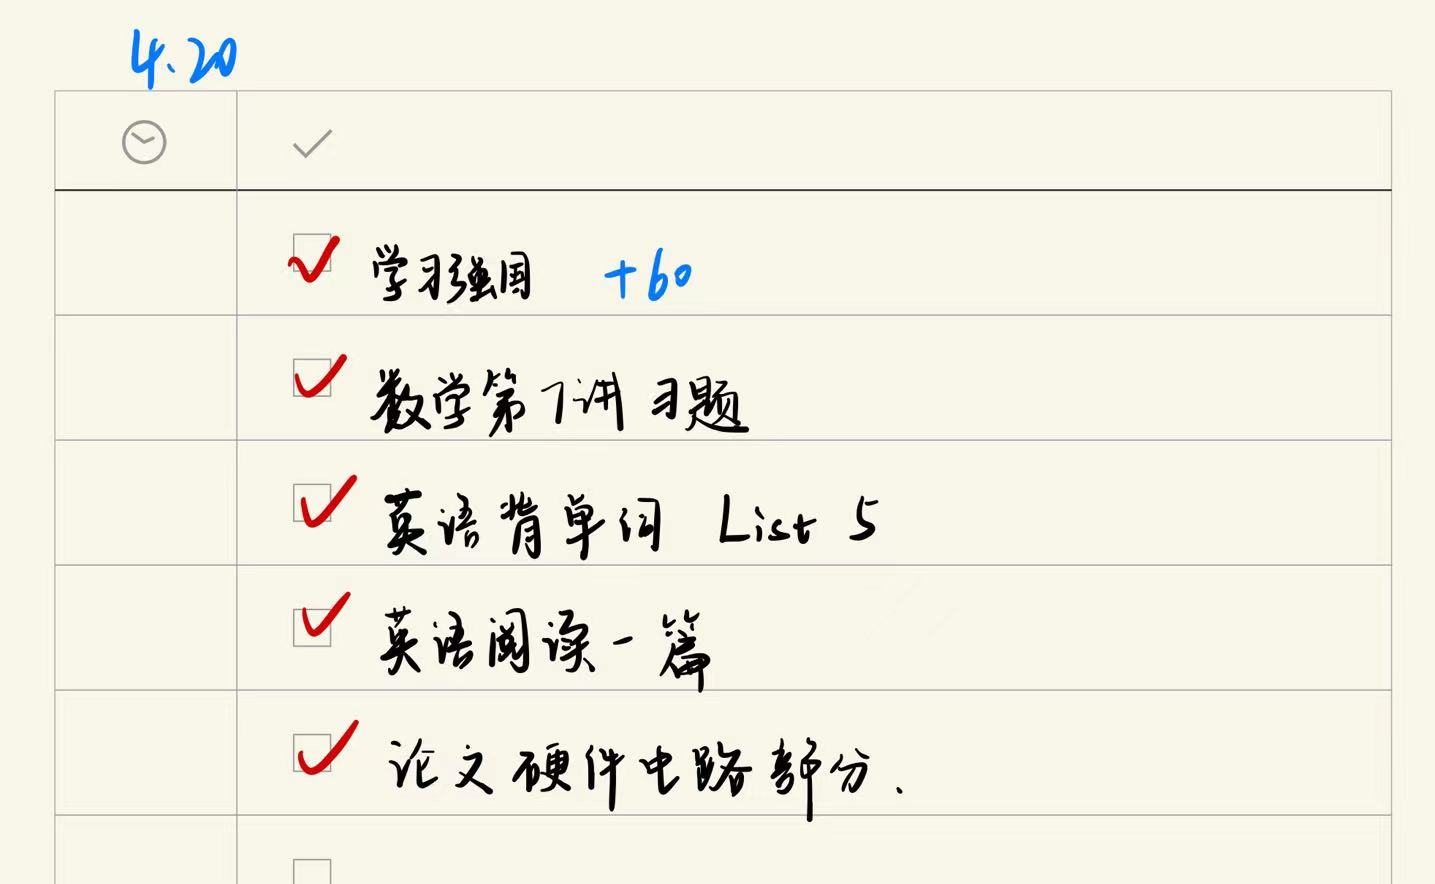 4.20
学习强国 +60
数学第7讲习题
英语背单词 List 5
英语阅读一篇
论文硬件电路部分.